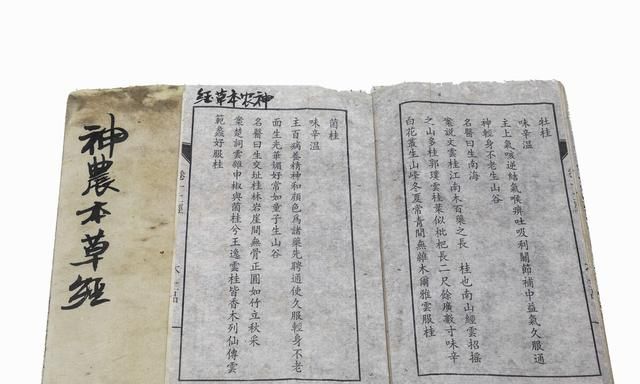 牡桂
味辛溫
主上氣咳逆結氣喉痹吐吸利關節補中益氣久服通
神輕身不老生山谷
名醫曰生南海
案說文雲桂江南木百藥之長　桂也南山經雲招搖
之山多桂郭璞雲桂葉似枇杷長二尺餘廣數寸味辛
白花叢生山峰冬夏常青間無雜木爾雅雲服桂
神农本草經
菌桂
味辛溫
主百病養精神和顏色為諸藥先聘通使久服輕身不老
面生光華媚好常如童子生山谷
名醫曰生交址桂林岩崖間無骨正圓如竹立秋采
案楚詞雲雜申椒與菌桂兮王逸雲桂皆香木列仙傳雲
範蠡好服桂
神農本草經